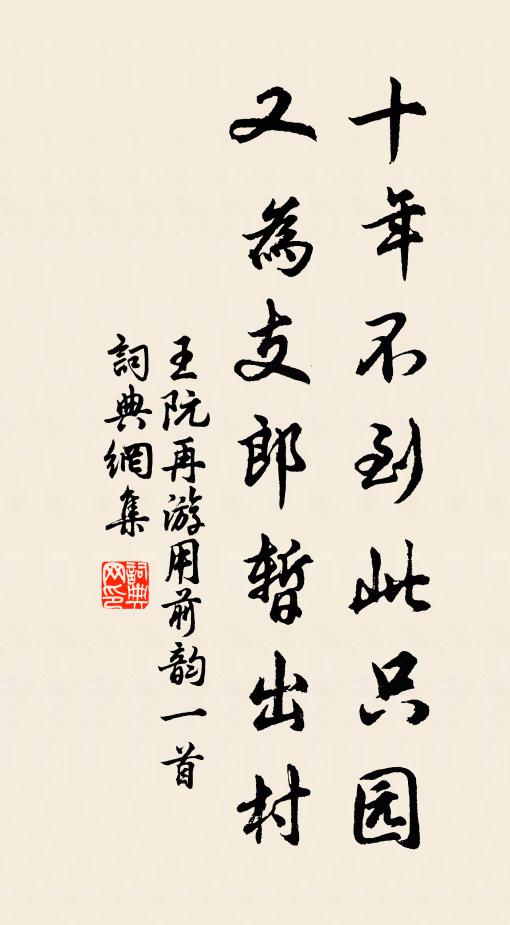 十年不到此只园
又為支郎暫出村
王阮再游用前韵一首
詞典網集
詞典网印